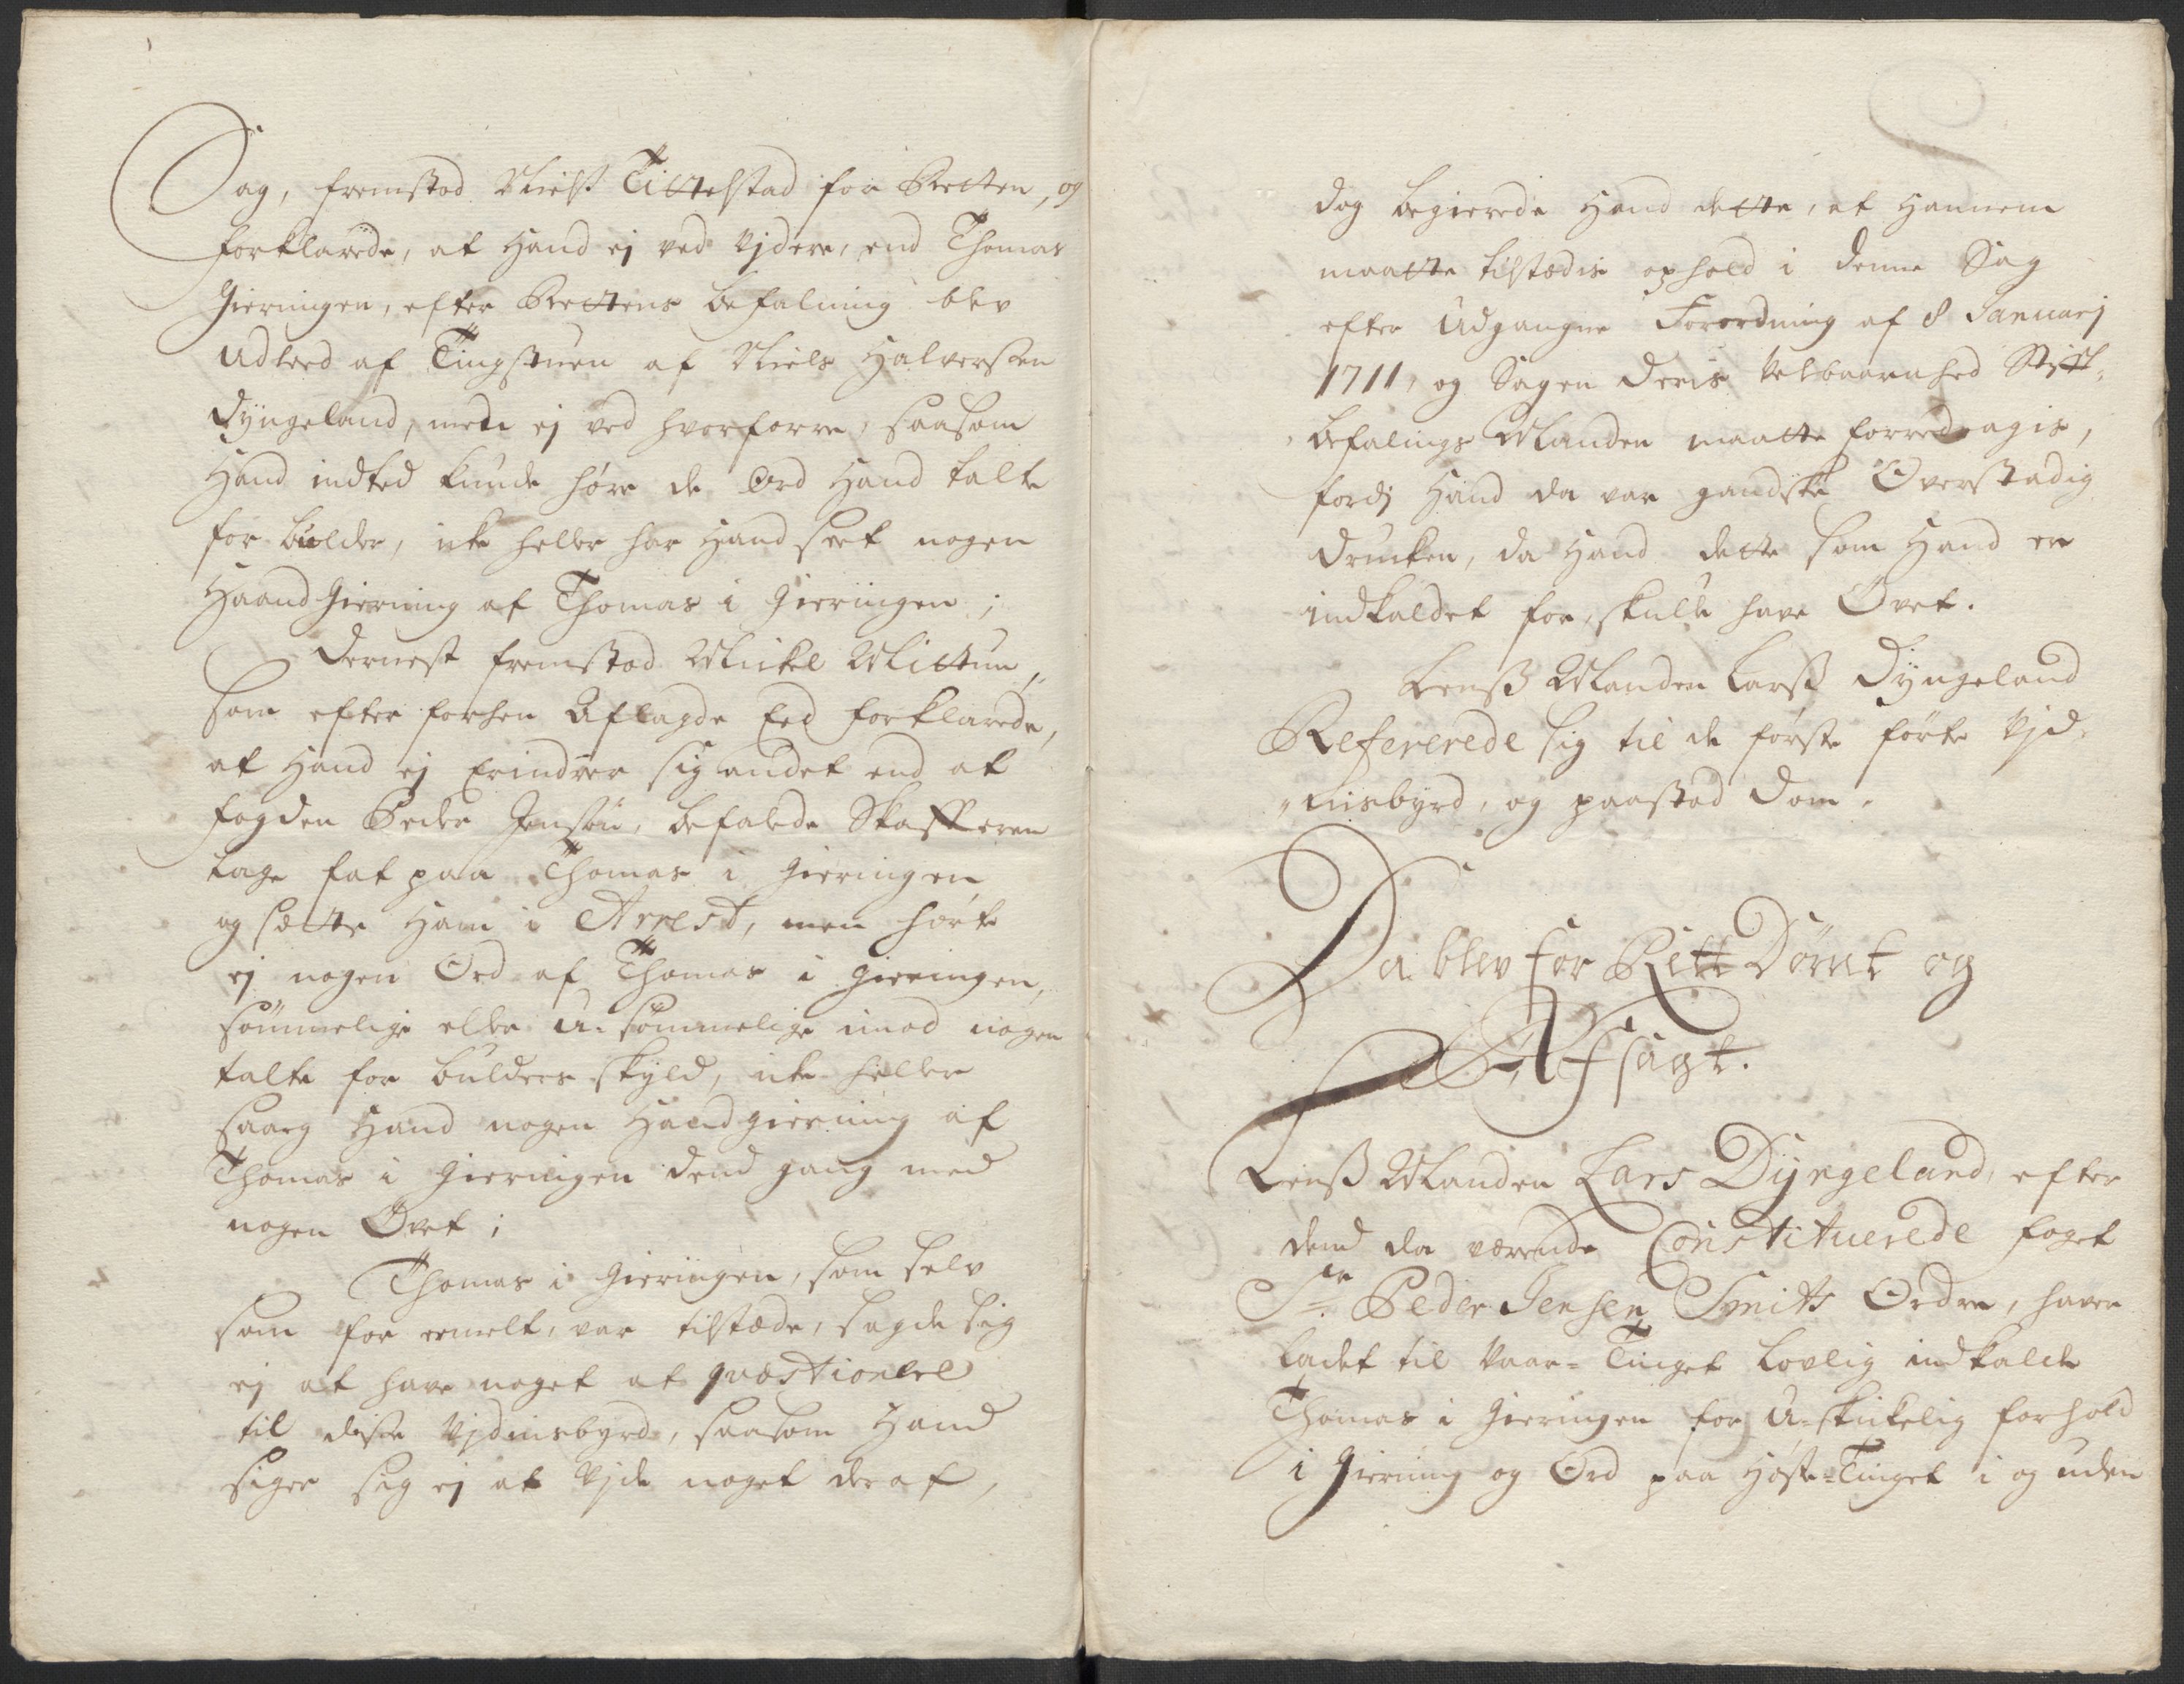 Sag, fremstod Niels Tittelstad for Retten, og
forklarede, at Hand ej ved vjdere, end Thomas
Gieringen, efter Rettens befalning blev
udleed af Tingstuen af Niels Halversen
Dyngeland, mens ej ved hvorforre, saasom
Hand indted kunde høre de Ord Hand talte
for bulder, icke heller har Hand seet nogen
Haand Gierning af Thomas i Gieringen;
Dernest fremstod Mickel Mittun,
som efter forhen Aflagde Eed forklarede,
at Hand ej Erindrer sig andet end at
fogden Peder Jensøn, befalede Skafferen
tage fat paa Thomas i Gieringen
og sætte Ham i Arrest, men hørte
ej nogen Ord af Thomas i Gieringen,
sømmelige eller u-sømmelige imod nogen
talte for bulders skyld, icke heller
saag Hand nogen Handgierning af
Thomas i Gieringen dend gang med
nogen Øvet;
Thomas i Gieringen, som selv
som for eemelt, var tilstæde, sagde sig
ej at have noget at qvæstionere
til disse vjdnisbyrd, saasom Hand
siger sig ej at vjde noget deraf,
dog begierede Hand dette, at Hannem
maatte tilstædis ophold i denne Sag
efter Udgangne Forordning af 8 Januarj
1711, og Sagen Deris Velbaarnhed Stift-
befalings Manden maatte forredragis,
fordj Hand da var gandske Overstadig
drucken, da Hand dette som Hand er
indkaldet for, skulle have Øvet.
Lenß Manden Larß Dyngeland
Refererede sig til de første førte vjd-
nisbyrd, og paastod Dom.
Da blev for Rett Dømt og
Afsagt.
Lenß Manden Lars Dyngeland, efter
dend da værende Constituerede foget
Sr. Peder Jensen Smits Ordre, haver
ladet til Vaar-Tinget lovlig indkalde
Thomas i Gieringen for U-skickelig forhold
i Gierning og Ord paa Høste-Tinget i og uden